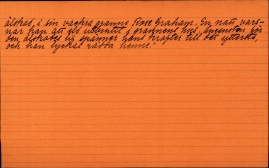 älskas, i sin vackra granne Rose Graham. En natt vark-
nar han att els utbrutit i grannens hus, ångesten för
den älskades liv spänner hans krafter till det yttersta,
och han lyckas rädda henne."